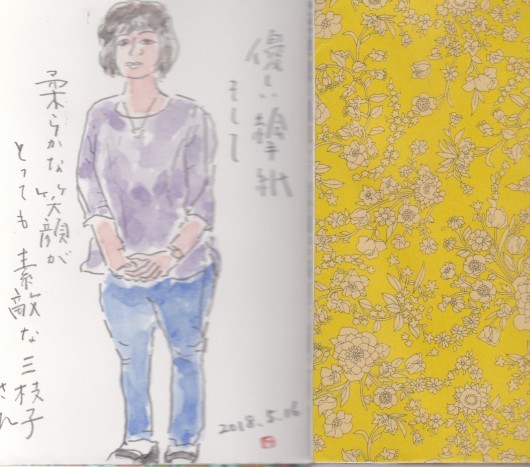 優しい絵手紙
そして
柔らかな笑顔が
とっても素敵な三枝子
さん
2018.5.16